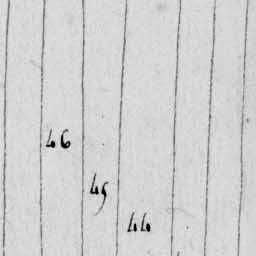 46
45
44